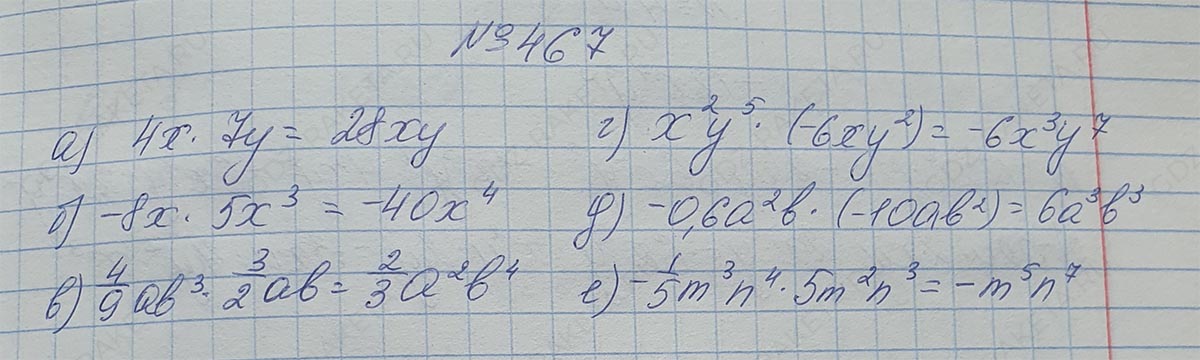 № 467
а) 4x · 7y = 28xy
б) -8x · 5x³ = -40x⁴
в) 4/9 ab³ · 3/2 ab = 2/3 a²b⁴
г) x²y⁵ · (-6xy²) = -6x³y⁷
д) -0,6a²b · (-10ab²) = 6a³b³
е) -1/5 m³n⁴ · 5m²n³ = -m⁵n⁷